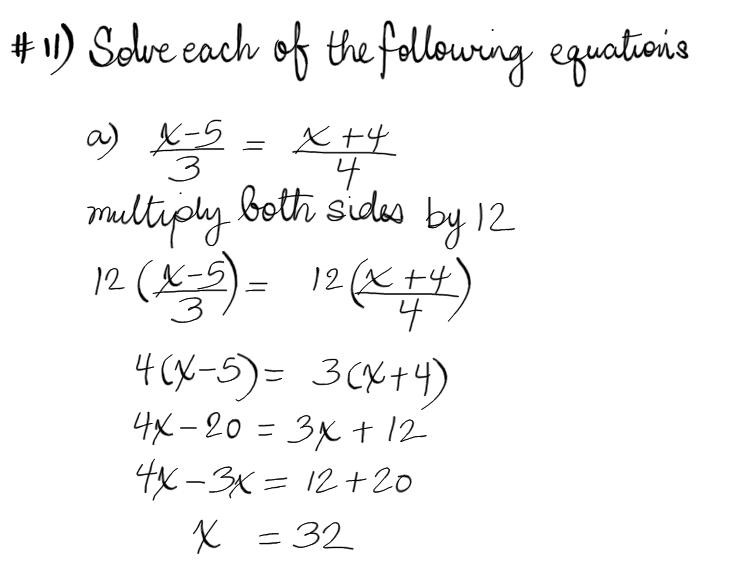 #11) Solve each of the following equations
a) x-5/3 = x+4/4
multiply both sides by 12
12(x-5/3) = 12(x+4/4)
4(x-5) = 3(x+4)
4x-20 = 3x+12
4x-3x = 12+20
x = 32